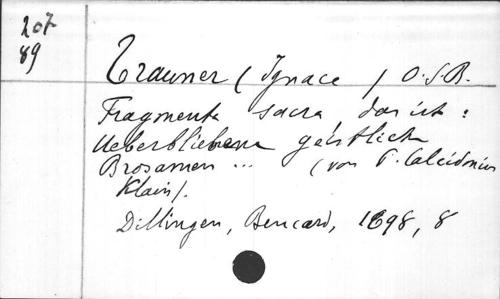 207
89
Trauner (Ignace) O.S.B.
Fragmenta sacra, das ist:
Ueberbliebene geistliche
Brosamen ... (von P. Calcidonius
Klain).
Dillingen, Bencard, 1698, 8